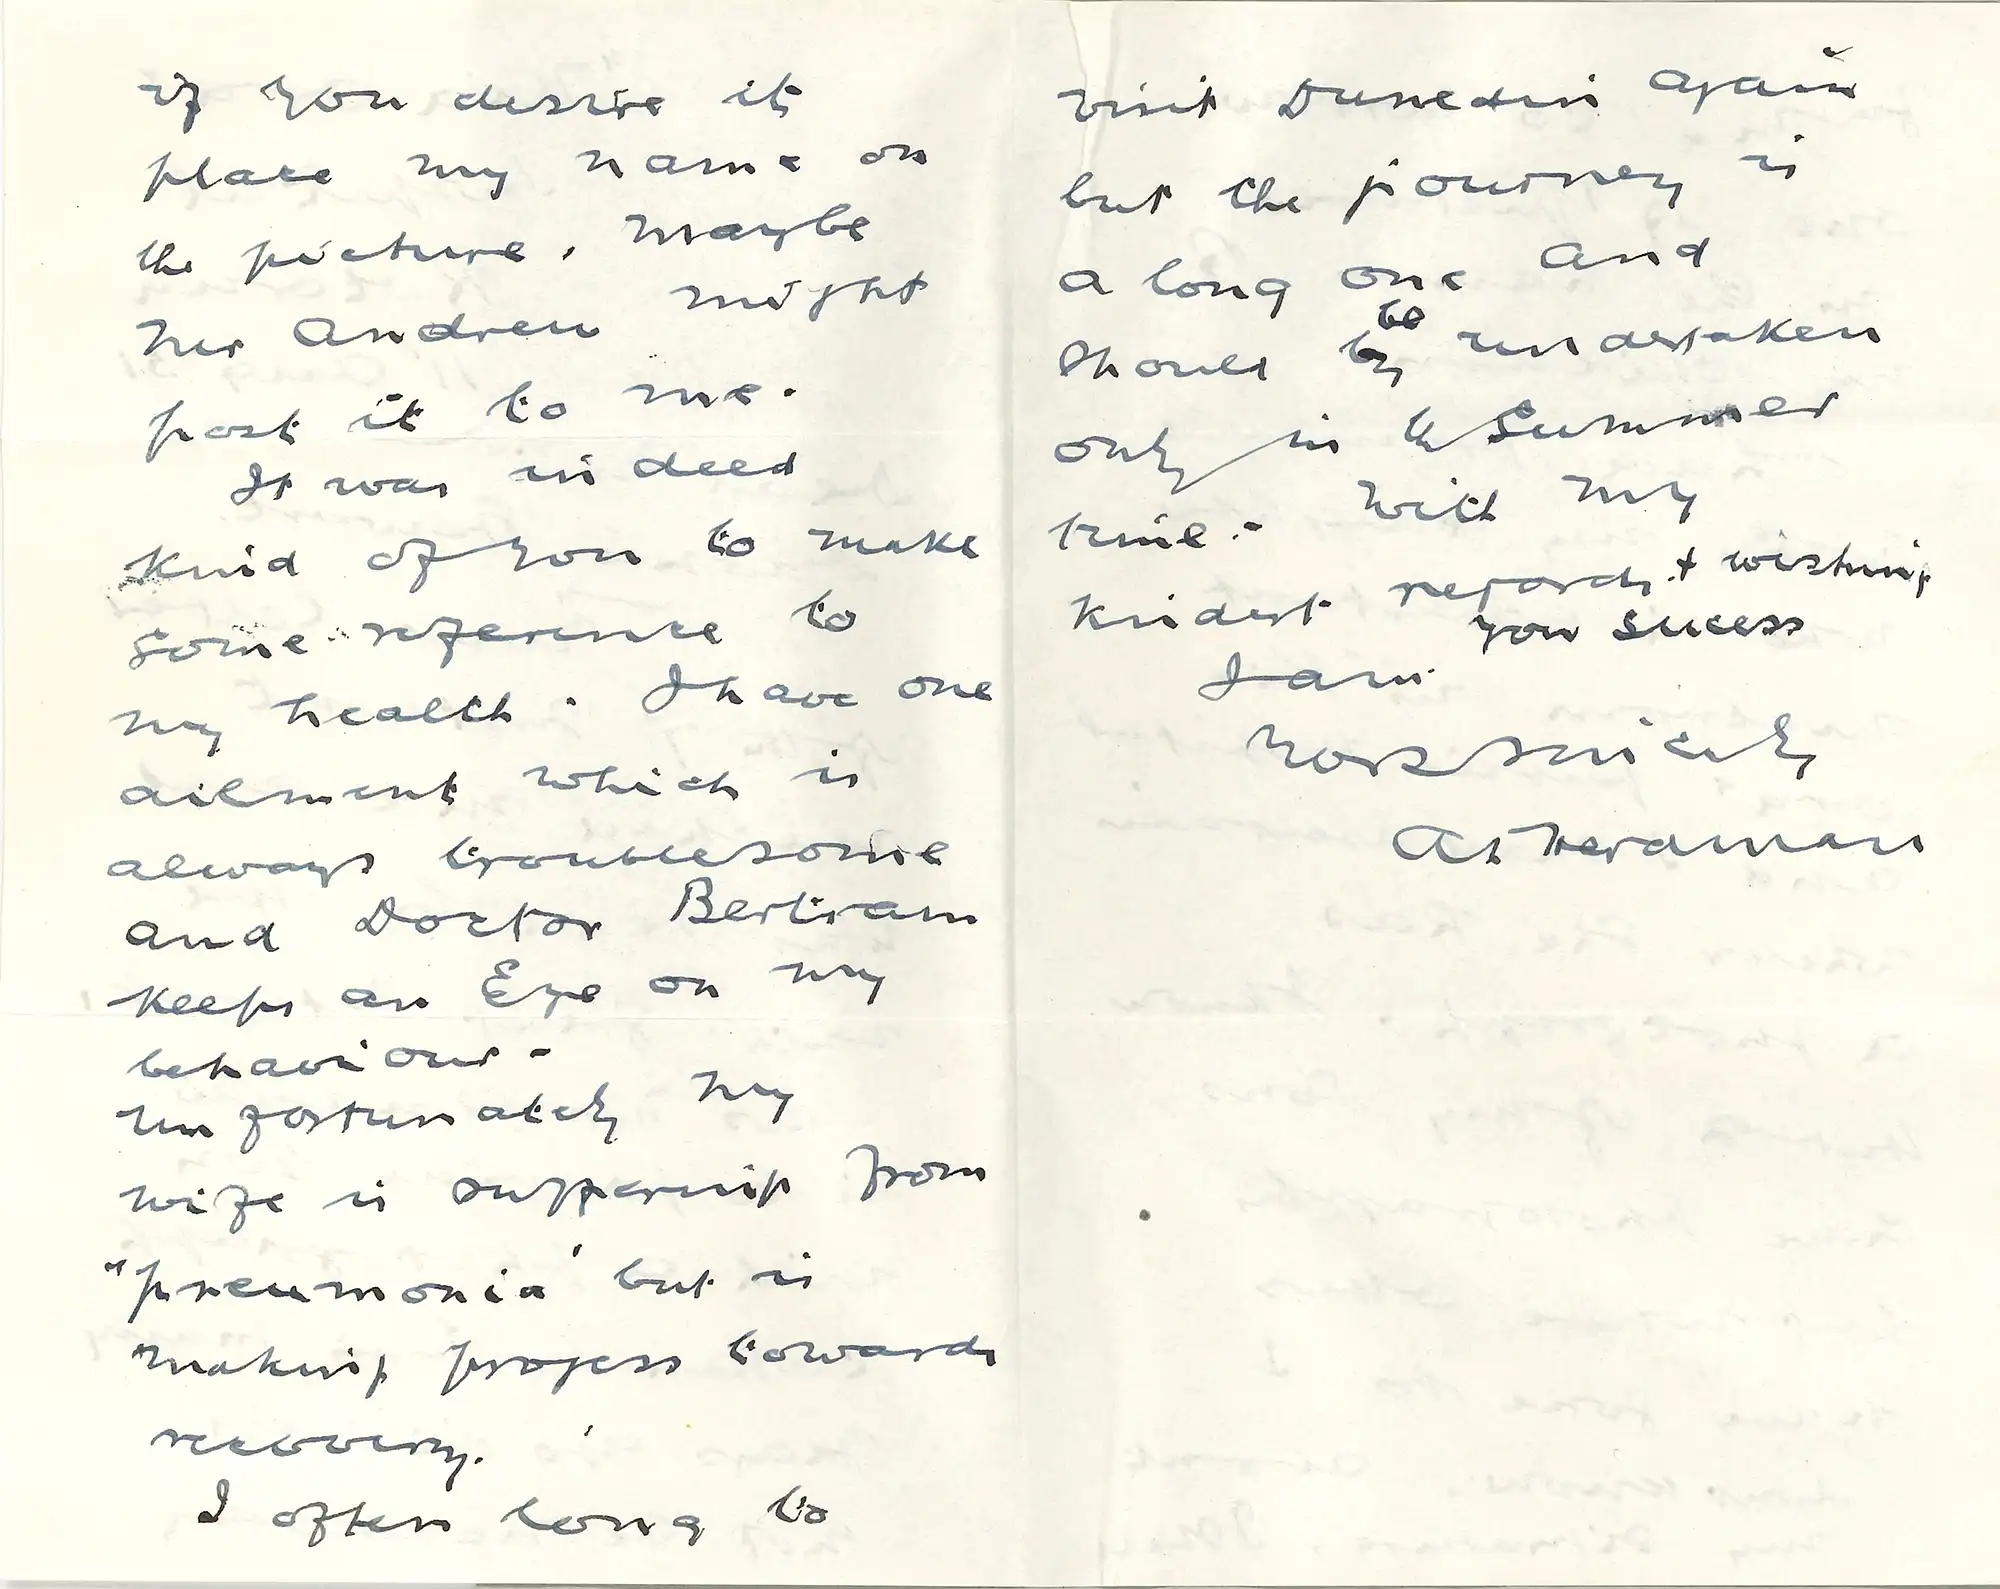 if you desire it
place my name on
the picture. Maybe
Mr Andrew might
post it to me.
It was indeed
kind of you to make
some reference to
my health. I have one
ailment which is
always troublesome
and Doctor Bertram
keeps an Eye on my
behaviour -
Unfortunately my
wife is suffering from
"pneumonia' but is
making progess towards
recovery.
I often long to
visit Dunedin again
but the journey is
a long one and
be
should by undertaken
only in the Summer
time. - With my
kindest regards + wishing
you sucess
I am.
Yors Sincerely